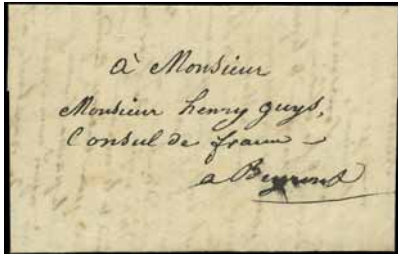 à Monsieur
Monsieur henry guys,
Consul de france
a Beyrout